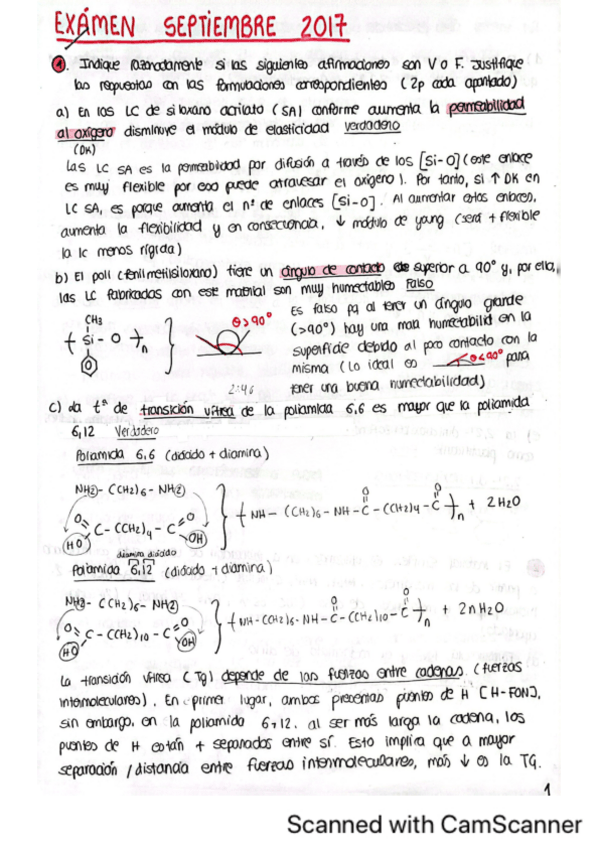 EXÁMEN SEPTIEMBRE 2017
1. Indique razonadamente si las siguientes afirmaciones son V o F. Justifique
las respuestas con las formulaciones correspondientes (2p cada apartado)
a) En los LC de siloxano acrilato (SA) conforme aumenta la permeabilidad
al oxígeno disminuye el módulo de elasticidad Verdadero
(DK)
Las LC SA es la permeabilidad por difusión a través de los [Si-O] (este enlace
es muy flexible por eso puede atravesar el oxígeno). Por tanto, si ↑ DK en
LC SA, es porque aumenta el nº de enlaces [Si-O]. Al aumentar estos enlaces,
aumenta la flexibilidad y en consecuencia, ↓ módulo de young (será + flexible
la lc menos rígida)
b) El poli (fenilmetilsiloxano) tiene un ángulo de contacto superior a 90° y, por ello,
las LC fabricadas con este material son muy humectables Falso
CH3
( Si - O )n
θ>90°
Es falso pq al tener un ángulo grande
(>90°) hay una mala humectabilid en la
superficie debido al poco contacto con la
misma (Lo ideal es θ<90° para
tener una buena humectabilidad)
2:46
c) La tª de transición vítrea de la poliamida 6,6 es mayor que la poliamida
6,12 Verdadero
Poliamida 6,6 (diácido + diamina)
NH2 - (CH2)6 - NH2
O HO C - (CH2)4 - C O OH
( NH - (CH2)6 - NH - C - (CH2)4 - C )n + 2 H2O
O O
diamina diácido
Poliamida 6,12 (diácido + diamina)
NH2 - (CH2)6 - NH2
O HO C - (CH2)10 - C O OH
( NH - (CH2)6 - NH - C - (CH2)10 - C )n + 2n H2O
O O
La transición vítrea (Tg) depende de las fuerzas entre cadenas (fuerzas
intermoleculares). En primer lugar, ambas presentan puentes de H [H-FON],
sin embargo, en la poliamida 6,12, al ser más larga la cadena, los
puentes de H están + separados entre sí. Esto implica que a mayor
separación / distancia entre fuerzas intermoleculares, más ↓ es la TG.
1
Scanned with CamScanner